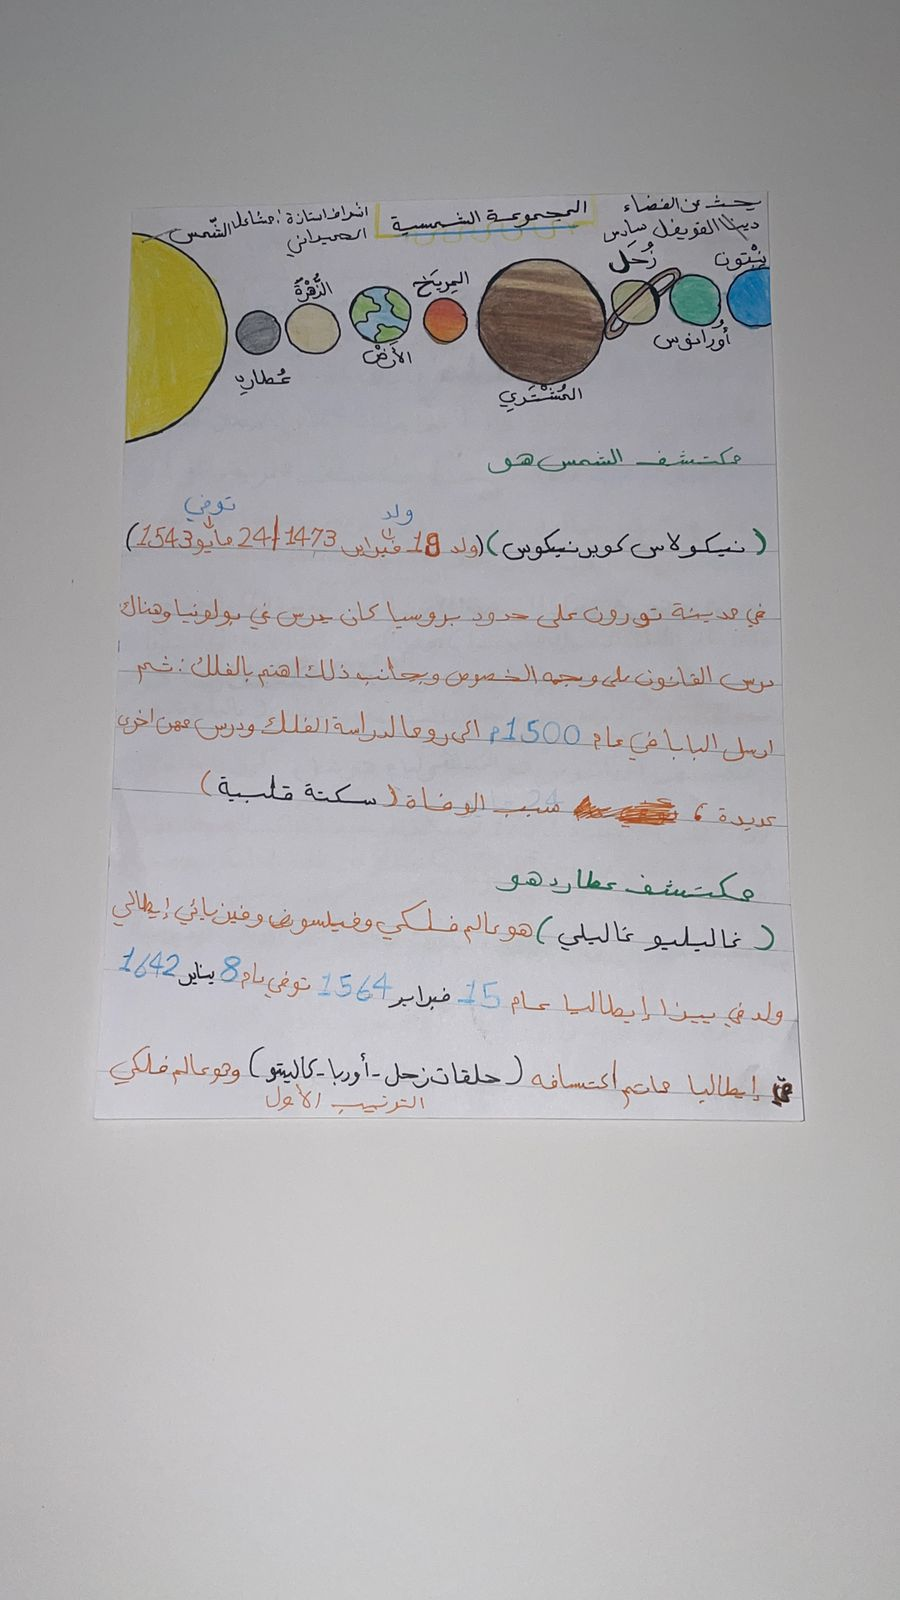 بحث عن الفضاء
المجموعة الشمسية
اشراف استاذة : مشاعل
دينا الفويفل سادس
الصميداني
الشّمس
نِبْتون
زُحَل
أورانوس
المُشْتَري
المِريَخ
الأَرضْ
الزُّهْرَةٌ
عُطارِد
مكتشف الشمس هو
ولد
توفي
( نيكولاس كوبرنيكوس ) ( ولد 19 فبراير 1473 / 24 مايو 1543 )
في مدينة تورون على حدود بروسيا كان يدرس في بولونيا وهناك
درس القانون على وجه الخصوص وبجانب ذلك اهتم بالفلك : ثم
ارسل البابا في عام 1500م الى روما لدراسة الفلك ودرس مهن اخرى
عديدة ، سبب الوفاة ( سكتة قلبية )
مكتشف عطارد هو
( غاليليو غاليلي ) هو عالم فلكي وفيلسوف وفيزيائي إيطالي
ولد في بيزا إيطاليا عام 15 فبراير 1564 توفي عام 8 يناير 1642
في إيطاليا ماتم اكتسافه ( حلقات زحل - أوربا - كاليتو ) وهو عالم فلكي
الترتيب الأول